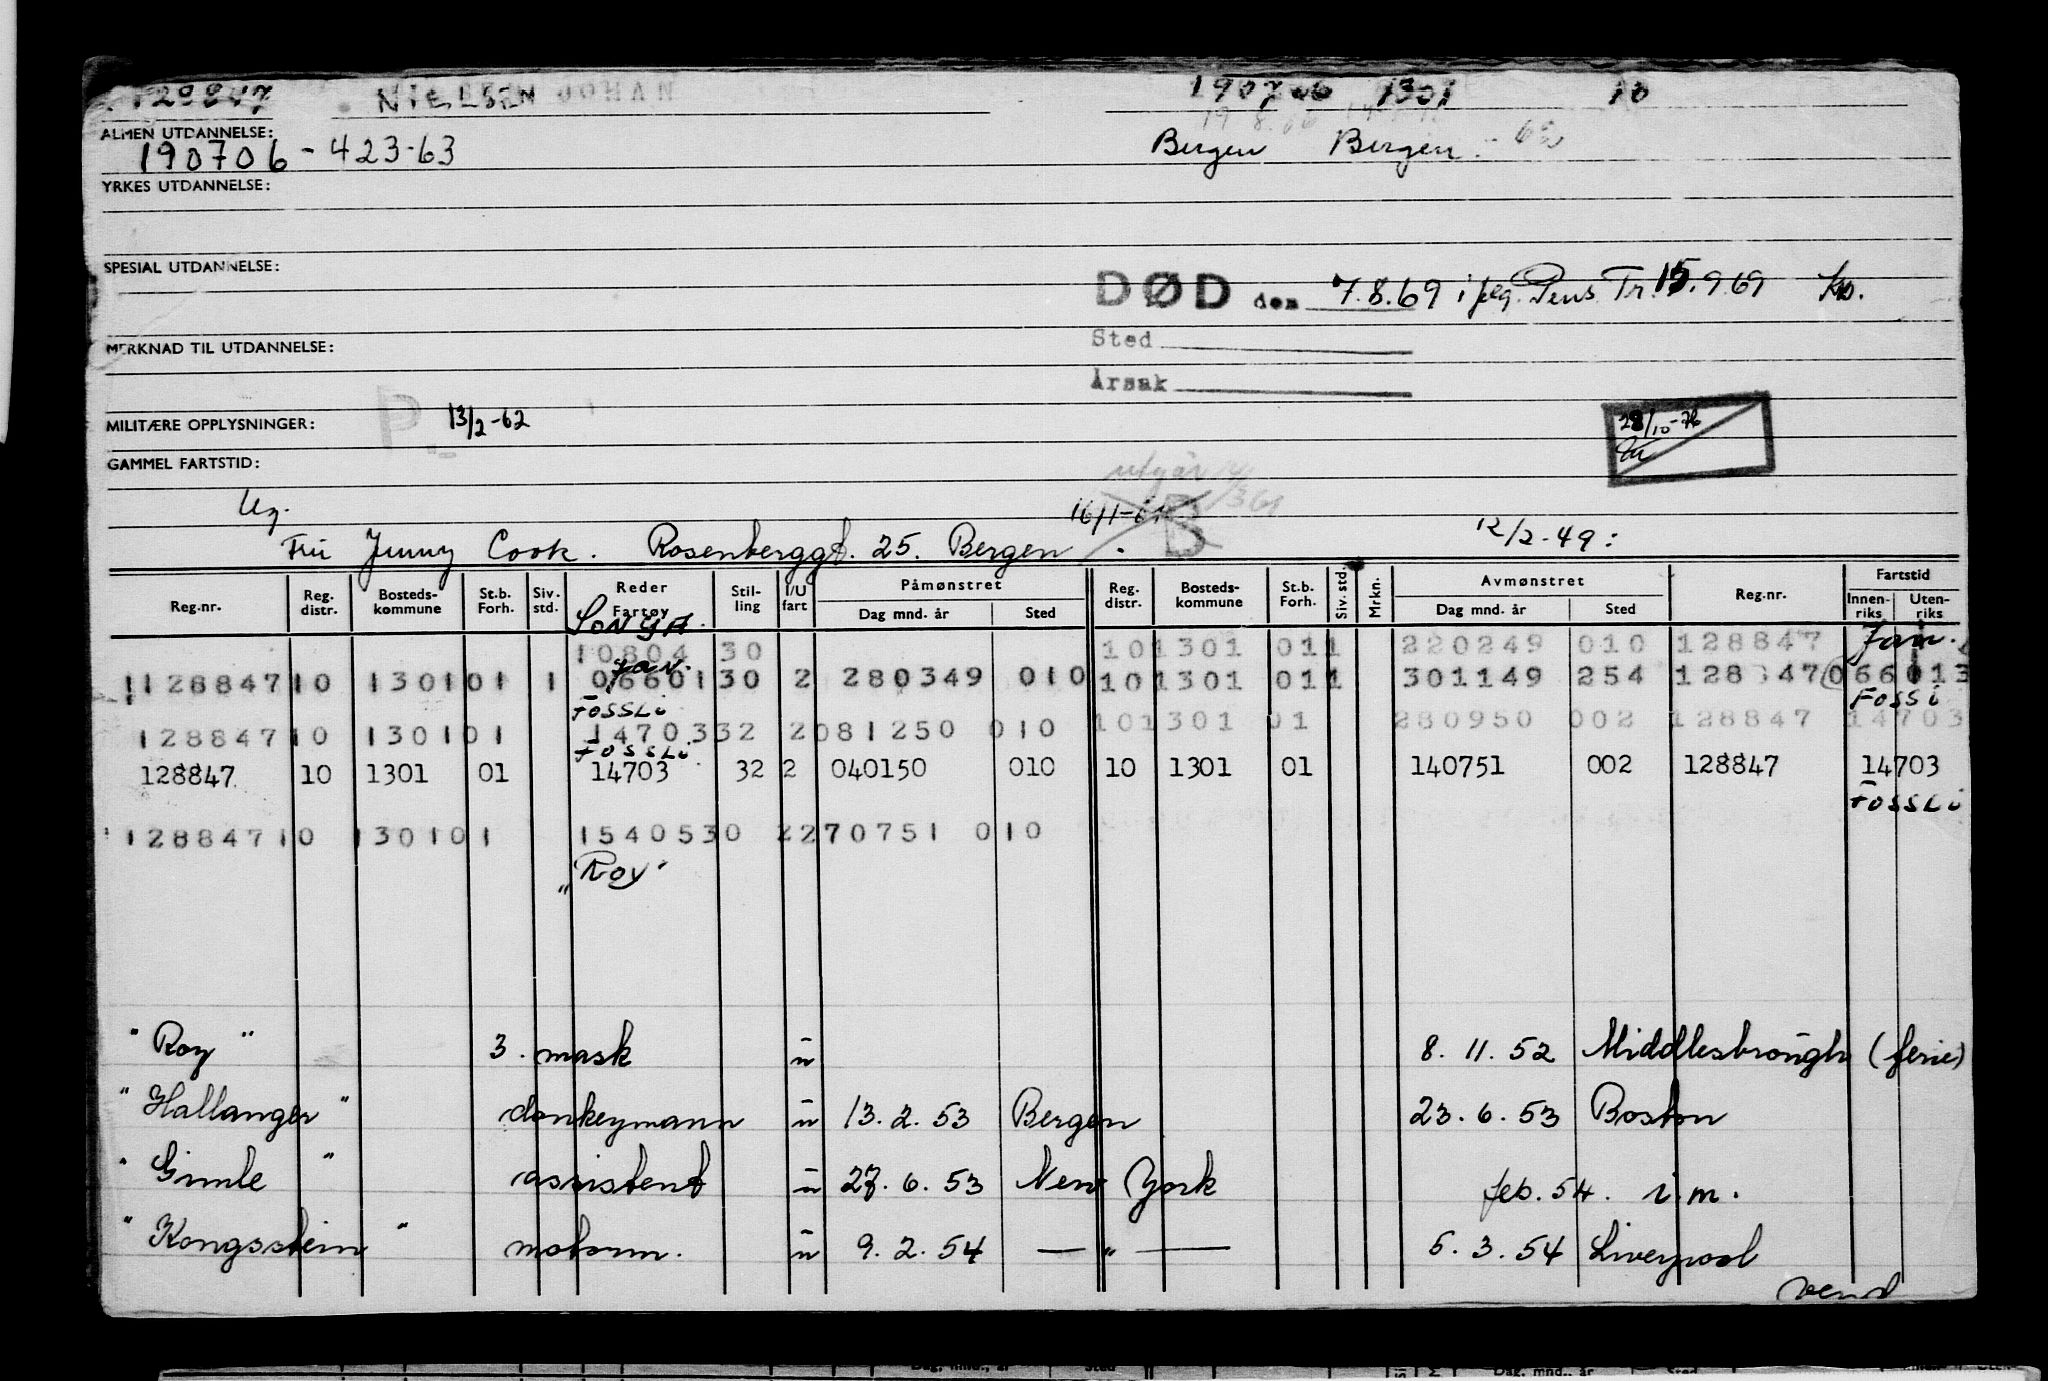 128847 NIELSEN JOHAN 190706 1301 10
ALMEN UTDANNELSE:
190706 - 423-63 Bergen Bergen. - 62
YRKES UTDANNELSE:
SPESIAL UTDANNELSE:
DØD den 7.8.69 i flg. Pens. Tr. 15.9.69
Sted
MERKNAD TIL UTDANNELSE:
Årsak
MILITÆRE OPPLYSNINGER: P 13/2-62 28/10-76
GAMMEL FARTSTID:
utgår
Ug. 16/1-61 B
Fru Jenny Cook. Rosenberggt. 25. Bergen. 12/2-49:
Reg.nr. Reg. distr. Bosteds-kommune St.b. Forh. Siv. std. Reder Fartøy Stil-ling I/U fart Påmønstret Dag mnd. år Sted Reg. distr. Bosteds-kommune St.b. Forh. Siv. std. Mrkn. Avmønstret Dag mnd. år Sted Reg.nr. Fartstid Innen-riks Uten-riks
SONJA.
10804 30 10 1301 01 1 220249 010 128847 Jan.
JAN.
128847 10 1301 01 1 06601 30 2 280349 010 10 1301 01 1 301149 254 128847 066013
FOSSLI FOSSLI
128847 10 1301 01 14703 32 2 081250 010 10 1301 01 280950 002 128847 14703
FOSSLI
128847 10 1301 01 14703 32 2 040150 010 10 1301 01 140751 002 128847 14703
FOSSLI
128847 10 1301 01 15405 30 2 270751 010
"Roy"
"Roy" 3. mask u 8. 11. 52 Middlesbrough (ferie)
"Hallanger" donkeymann u 13. 2. 53 Bergen 23. 6. 53 Boston
"Gimle" assistent u 27. 6. 53 New York feb. 54. i.m.
"Kongsstein" motorm. u 9. 2. 54 — " — 5. 3. 54 Liverpool
vend
Dag, mnd., år Sted Dag, mnd., år Sted